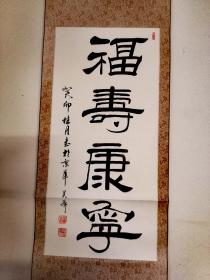 福壽康寧
癸卯桂月書於京華